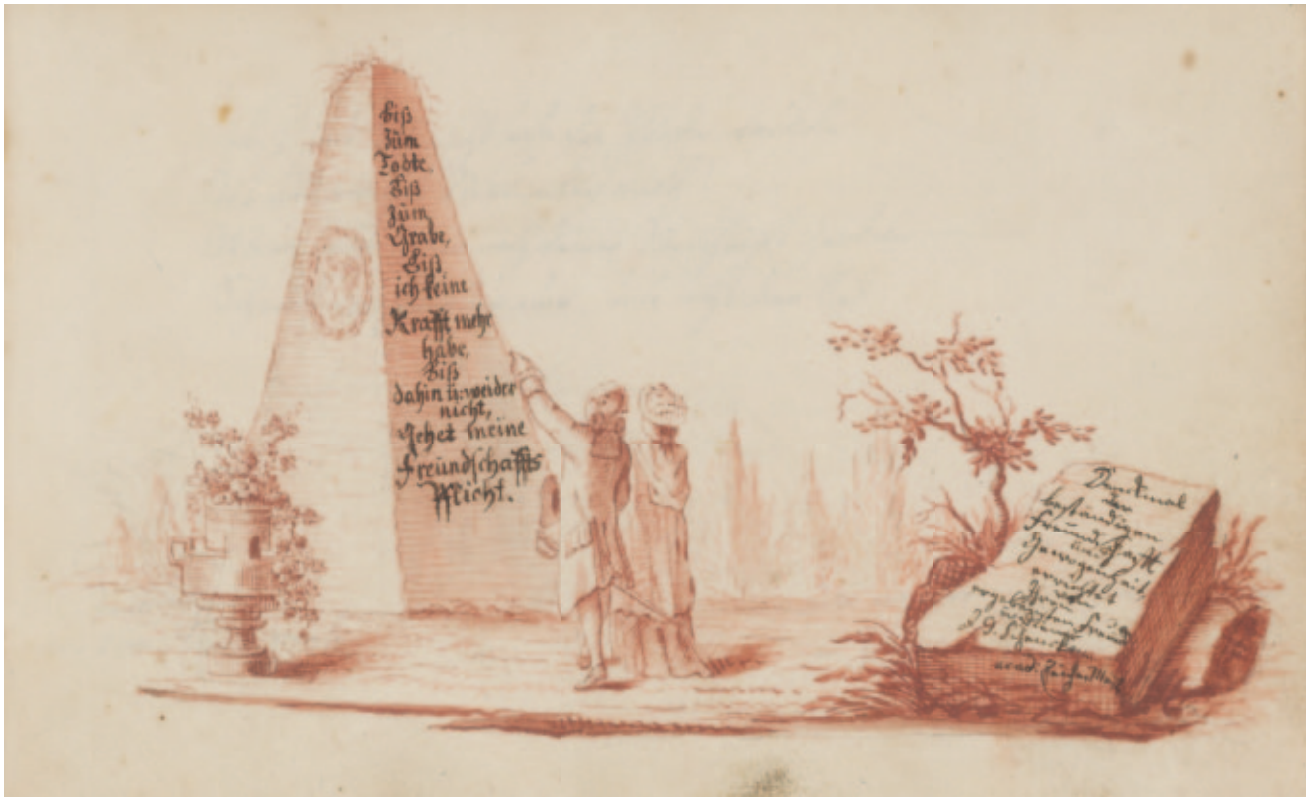 Biß
zum
Todte.
Biß
zum
Grabe,
Biß
ich keine
Krafft mehr
habe,
Biß
dahin u: weider
nicht,
Gehet meine
Freundschaffts
Pflicht.
Denckmal
der
beständigen
Freundschafft
und
Gewogenheit,
errichtet
von
Ihrem
ergebensten Freund
J. G.
acad: Zeichen